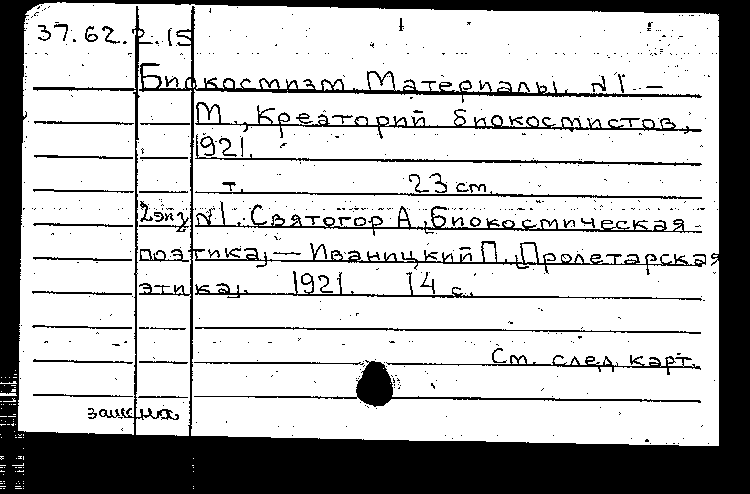 37.62.2.15
Биокосмизм. Материалы. №1 –
М., Креаторий биокосмистов,
1921.
т. 23 cm.
2 экз №1. Святогор А. [Биокосмическая
поэтика]. – Иваницкий П. [Пролетарская
этика]. 1921. 14 с.
См. след карт.